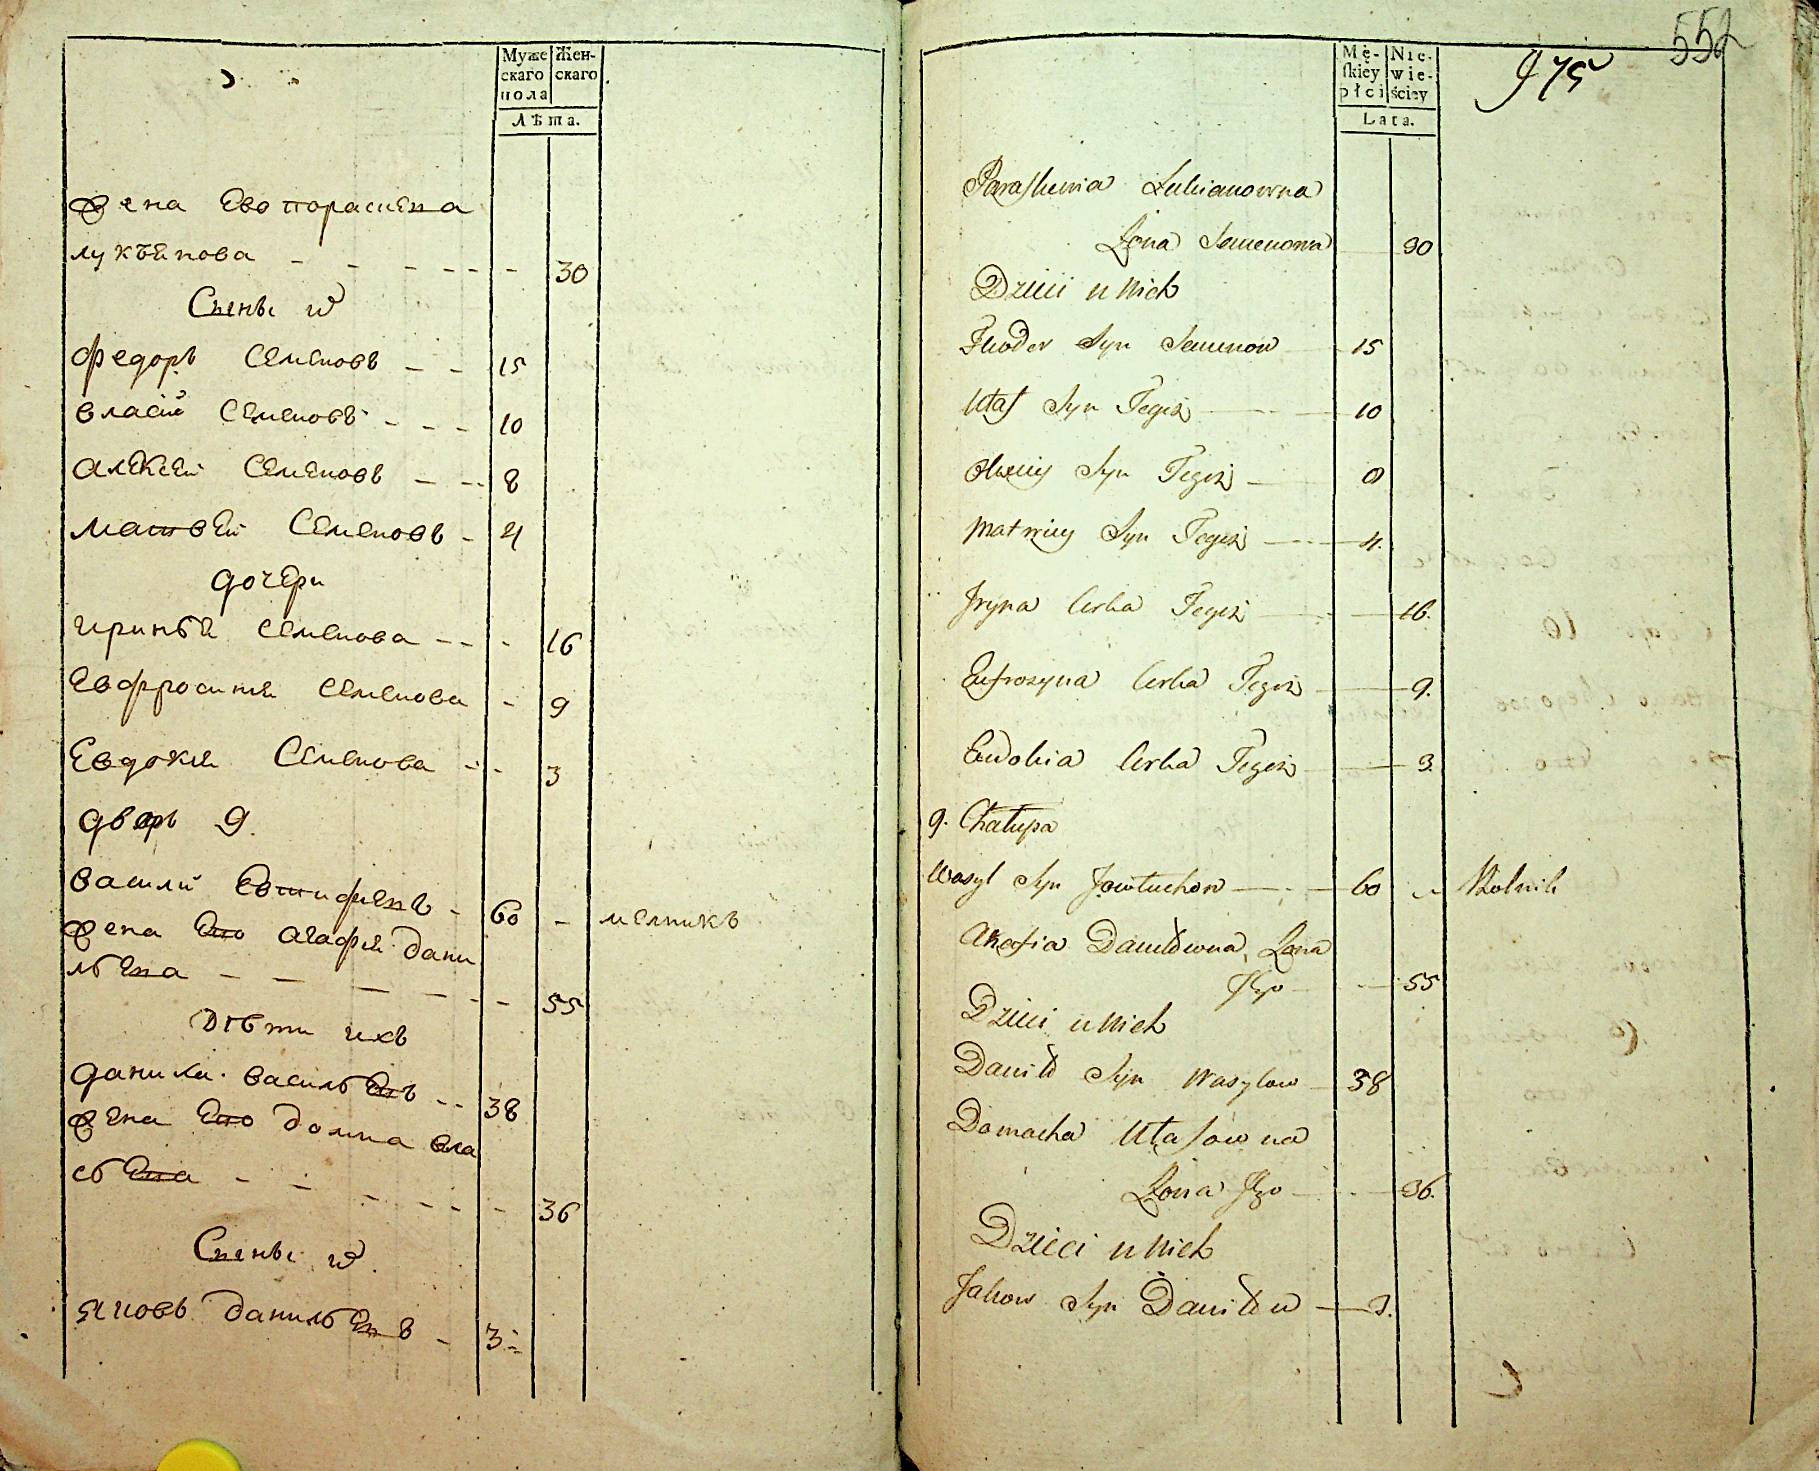 Муже
скаго
пола
Жен-
скаго
Лѣта.
жена Его параскева
лукъянова - - - - - - 30
Сыны и҃
федоръ Семеновъ - - 15
власий Семеновъ - - - 10
Алексей Семеновъ - - - 8
матвей Семеновъ - 4
дочери
иринья Семенова - - - 16
Евфросиния Семенова - 9
Евдокия Семенова - - 3
дворъ 9.
василий - 60 - мелникъ
жена Его агафия дани
льева - - - - - - 55
Дѣти ихъ
данила васильевъ - - 38
жена Его домна вла
сьева - - - - - - - 36
Сыны и҃
яковъ данильевъ - 3
Mę-
skiey
płci
Nie-
wie-
ściey
Lata.
975
552
Paraskewia Łukianowna
Żona Semenowa 30
Dzieci u Nich
Fiedor Syn Semenow 15
Ułas Syn Tegoż 10
Olexiey Syn Tegoż 8
Matwiey Syn Tegoż 4.
Jryna Corka Tegoż 16.
Eufrozyna Corka Tegoż 9.
Eudokia Corka Tegoż 3.
9. Chałupa
Wasyl Syn Jowtuchow 60 - Rolnik
Ahafia Daniłowna, Żona
Jego 55
Dzieci u Nich
Daniło Syn Wasylow 38
Domacha Ułasowna
Żona Jego 36.
Dzieci u Nich
Jakow Syn Daniłow 3.